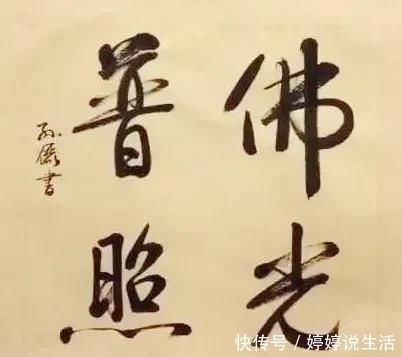 佛光
普照
孙俪书
快传号/婷婷说生活